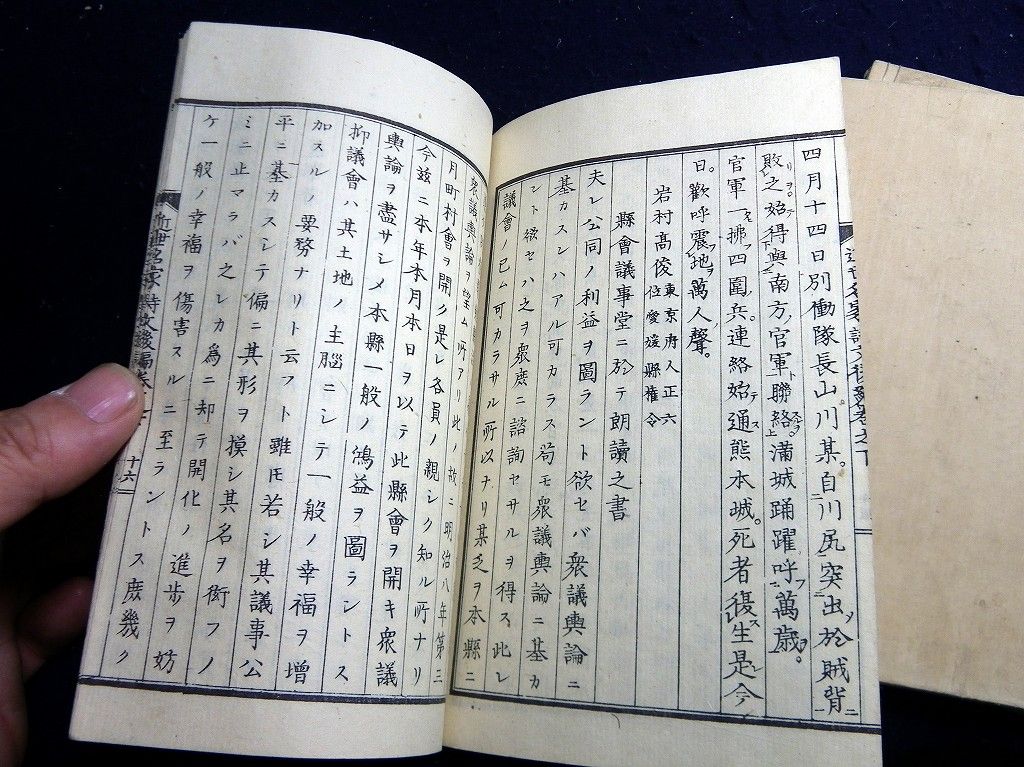 四月十四日別働隊長山川某。自川尻突出於賊背
敗之始得與南方官軍聯絡滿城踊躍呼萬歲。
官軍一拂四圍兵連絡始通熊本城。死者復生是今
日。歡呼震地萬人聲。
岩村高俊 東京府人正六位愛媛縣權令
縣會議事堂ニ於テ朗讀之書
夫レ公同ノ利益ヲ圖ラント欲セバ衆議輿論ニ
基カスンハアル可カラス苟モ衆議輿論ニ基カ
ント欲セハ之ヲ衆庶ニ諮詢セサルヲ得ス此レ
議會ノ已ム可カラサル所以ナリ某乏ヲ本縣ニ
衆議輿論ヲ望ム所アリ此ノ故ニ明治八年第三
月町村會ヲ開ク是レ各員ノ親シク知ル所ナリ
今茲ニ本年本月本日ヲ以テ此縣會ヲ開キ衆議
輿論ヲ盡サシメ本縣一般ノ鴻益ヲ圖ラントス
抑議會ハ其土地ノ主腦ニシテ一般ノ幸福ヲ增
加スルノ要務ナリト云フト雖モ若シ其議事公
平ニ基カスシテ偏ニ其形ヲ摸シ其名ヲ衒フノ
ミニ止マラバ之レカ爲ニ却テ開化ノ進步ヲ妨
ケ一般ノ幸福ヲ傷害スルニ至ラントス庶幾ク
近世名家詩文後編卷之下
十六